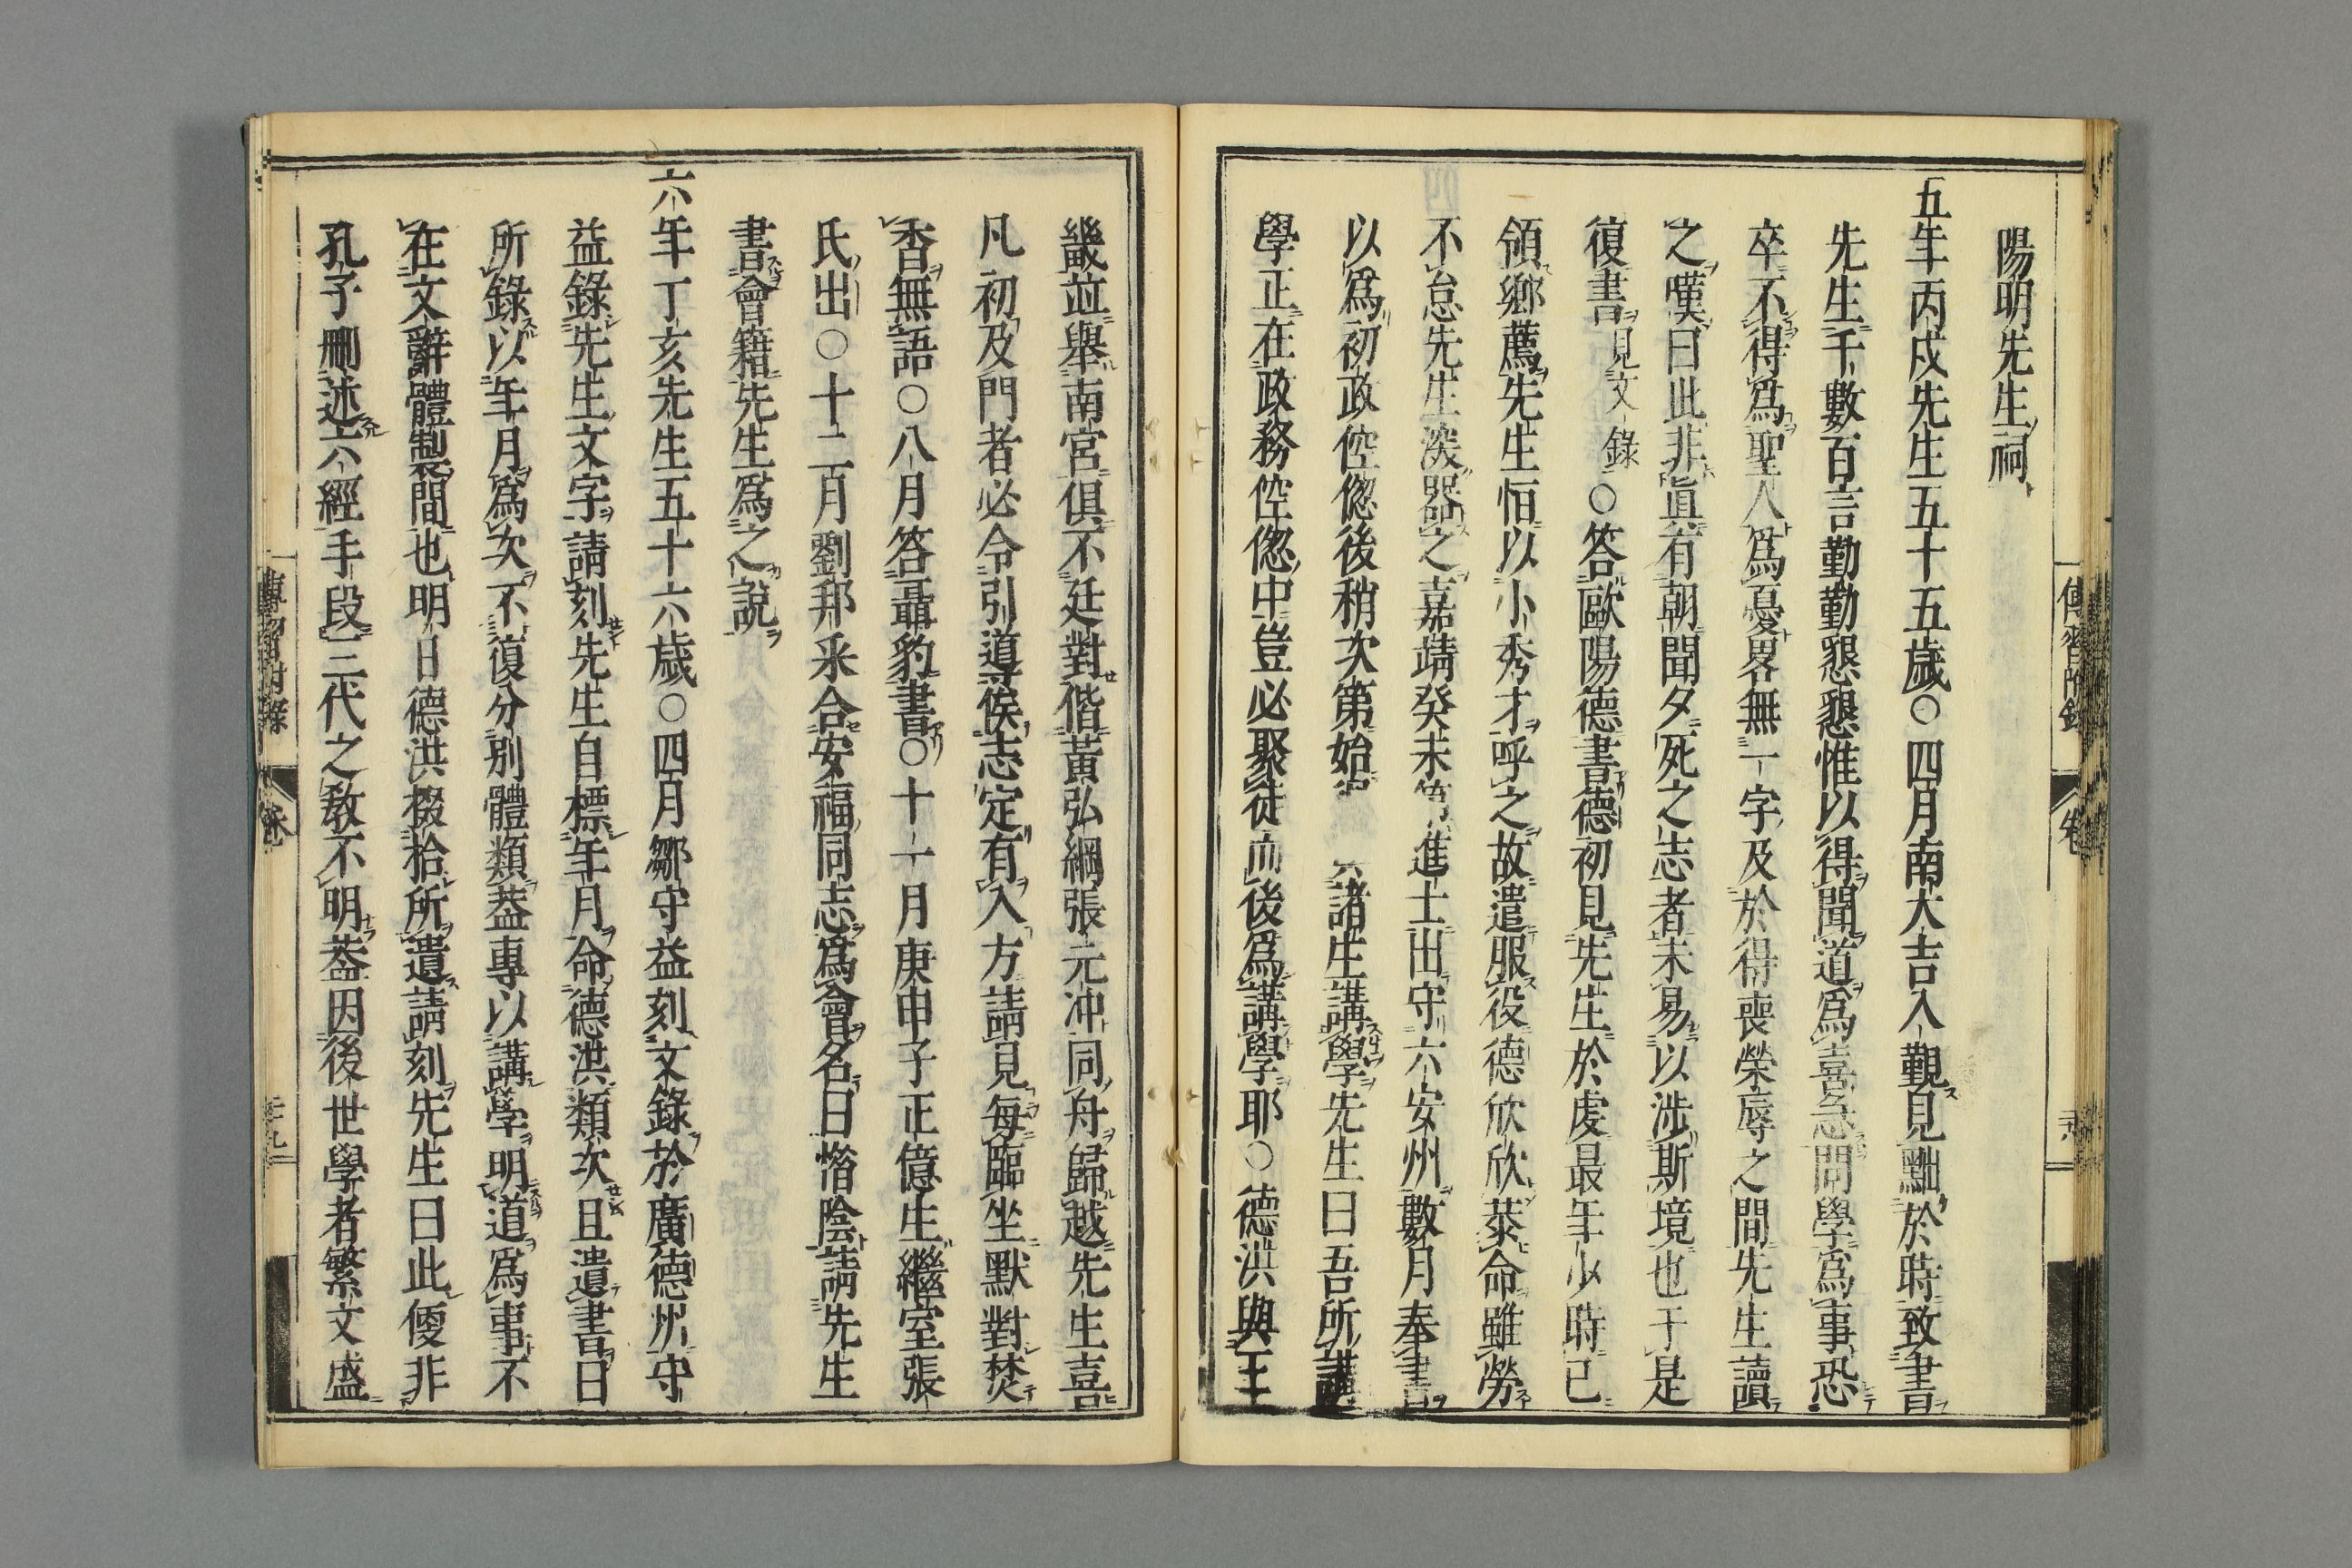 陽明先生祠
五年丙戌先生五十五歲○四月南大吉入覲見黜於時致書
先生千數百言勤勤懇懇惟以得聞道爲喜急問學爲事恐
卒不得爲聖人爲憂畧無一字及於得喪榮辱之間先生讀
之嘆曰此非眞有朝聞夕死之志者未易以涉斯境也于是
復書見文錄○答歐陽德書德初見先生於虔最年少時已
領鄉薦先生恒以小秀才呼之故遣服役德欣欣恭命雖勞
不怠先生深器之嘉靖癸未第進士出守六安州數月奉書
以爲初政倥偬後稍次第始 諸生講學先生曰吾所講
學正在政務倥偬中豈必聚徒而後爲講學耶○德洪與王
畿並舉南宮俱不廷對偕黃弘綱張元冲同舟歸越先生喜
凡初及門者必令引導俟志定有入方請見每臨坐默對焚
香無語○八月答聶豹書○十一月庚申子正億生繼室張
氏出○十二月劉邦采合安福同志爲會名曰惜陰請先生
書會籍先生爲之說
六年丁亥先生五十六歲○四月鄒守益刻文錄於廣德州守
益錄先生文字請刻先生自標年月命德洪類次且遺書曰
所錄以年月爲次不復分別體類葢專以講學明道爲事不
在文辭體製間也明日德洪掇拾所遺請刻先生曰此便非
孔子刪述六經手段三代之敎不明葢因後世學者繁文盛
傳習附錄
卷
傳習附錄
卷
二九